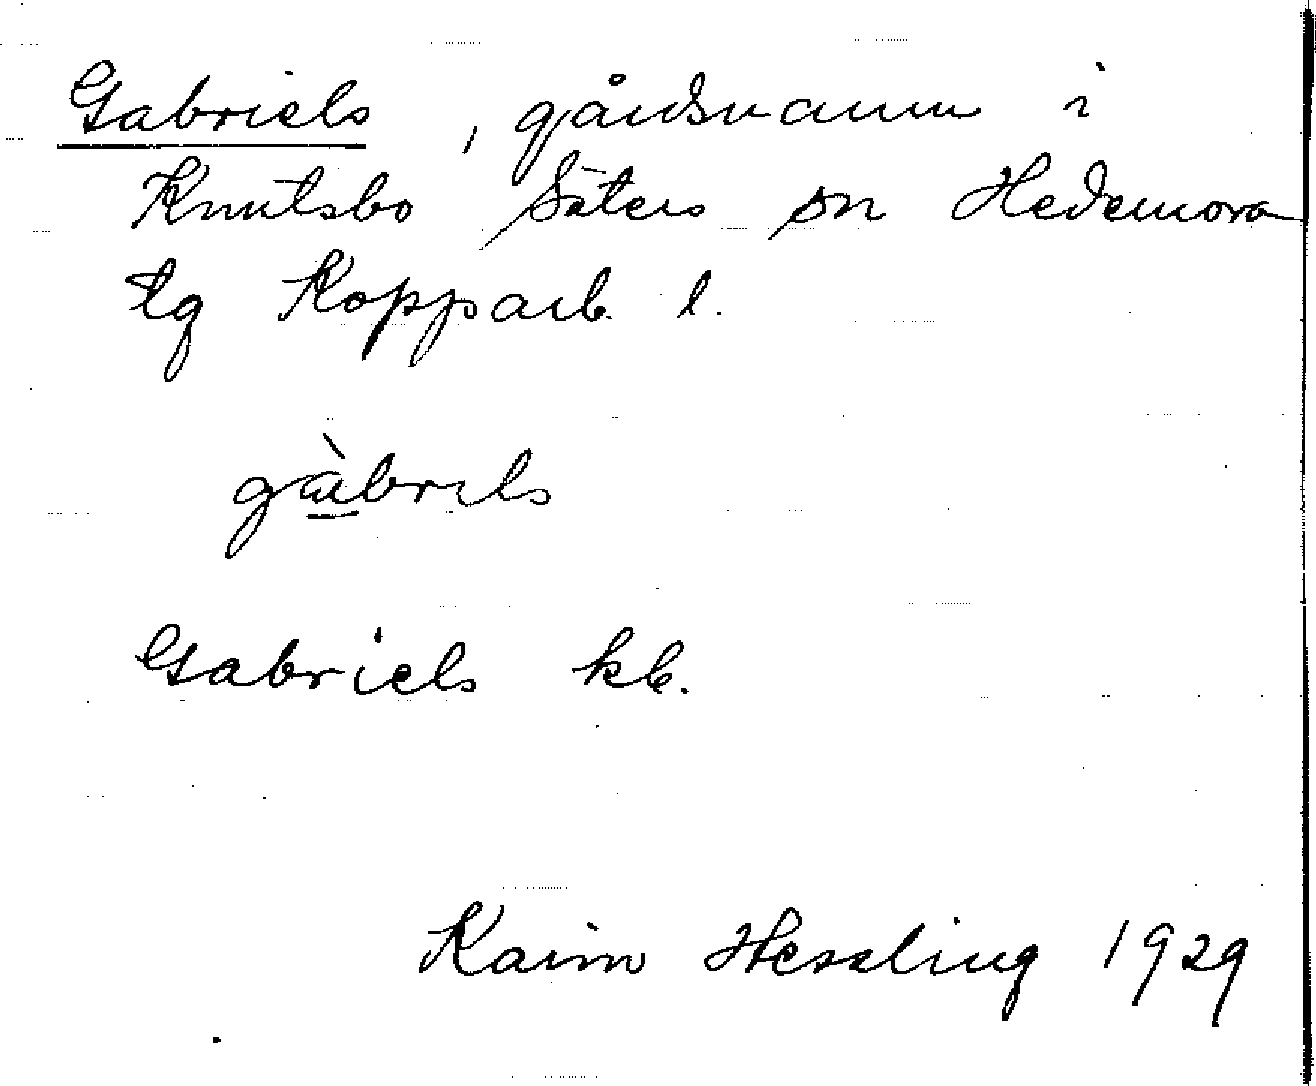 Gabriels, gårdsnamn i
Knutsbo Säters sn Hedemora
tg Kopparb. l.
gàbrıls
Gabriels kb.
Karin Hessling 1929